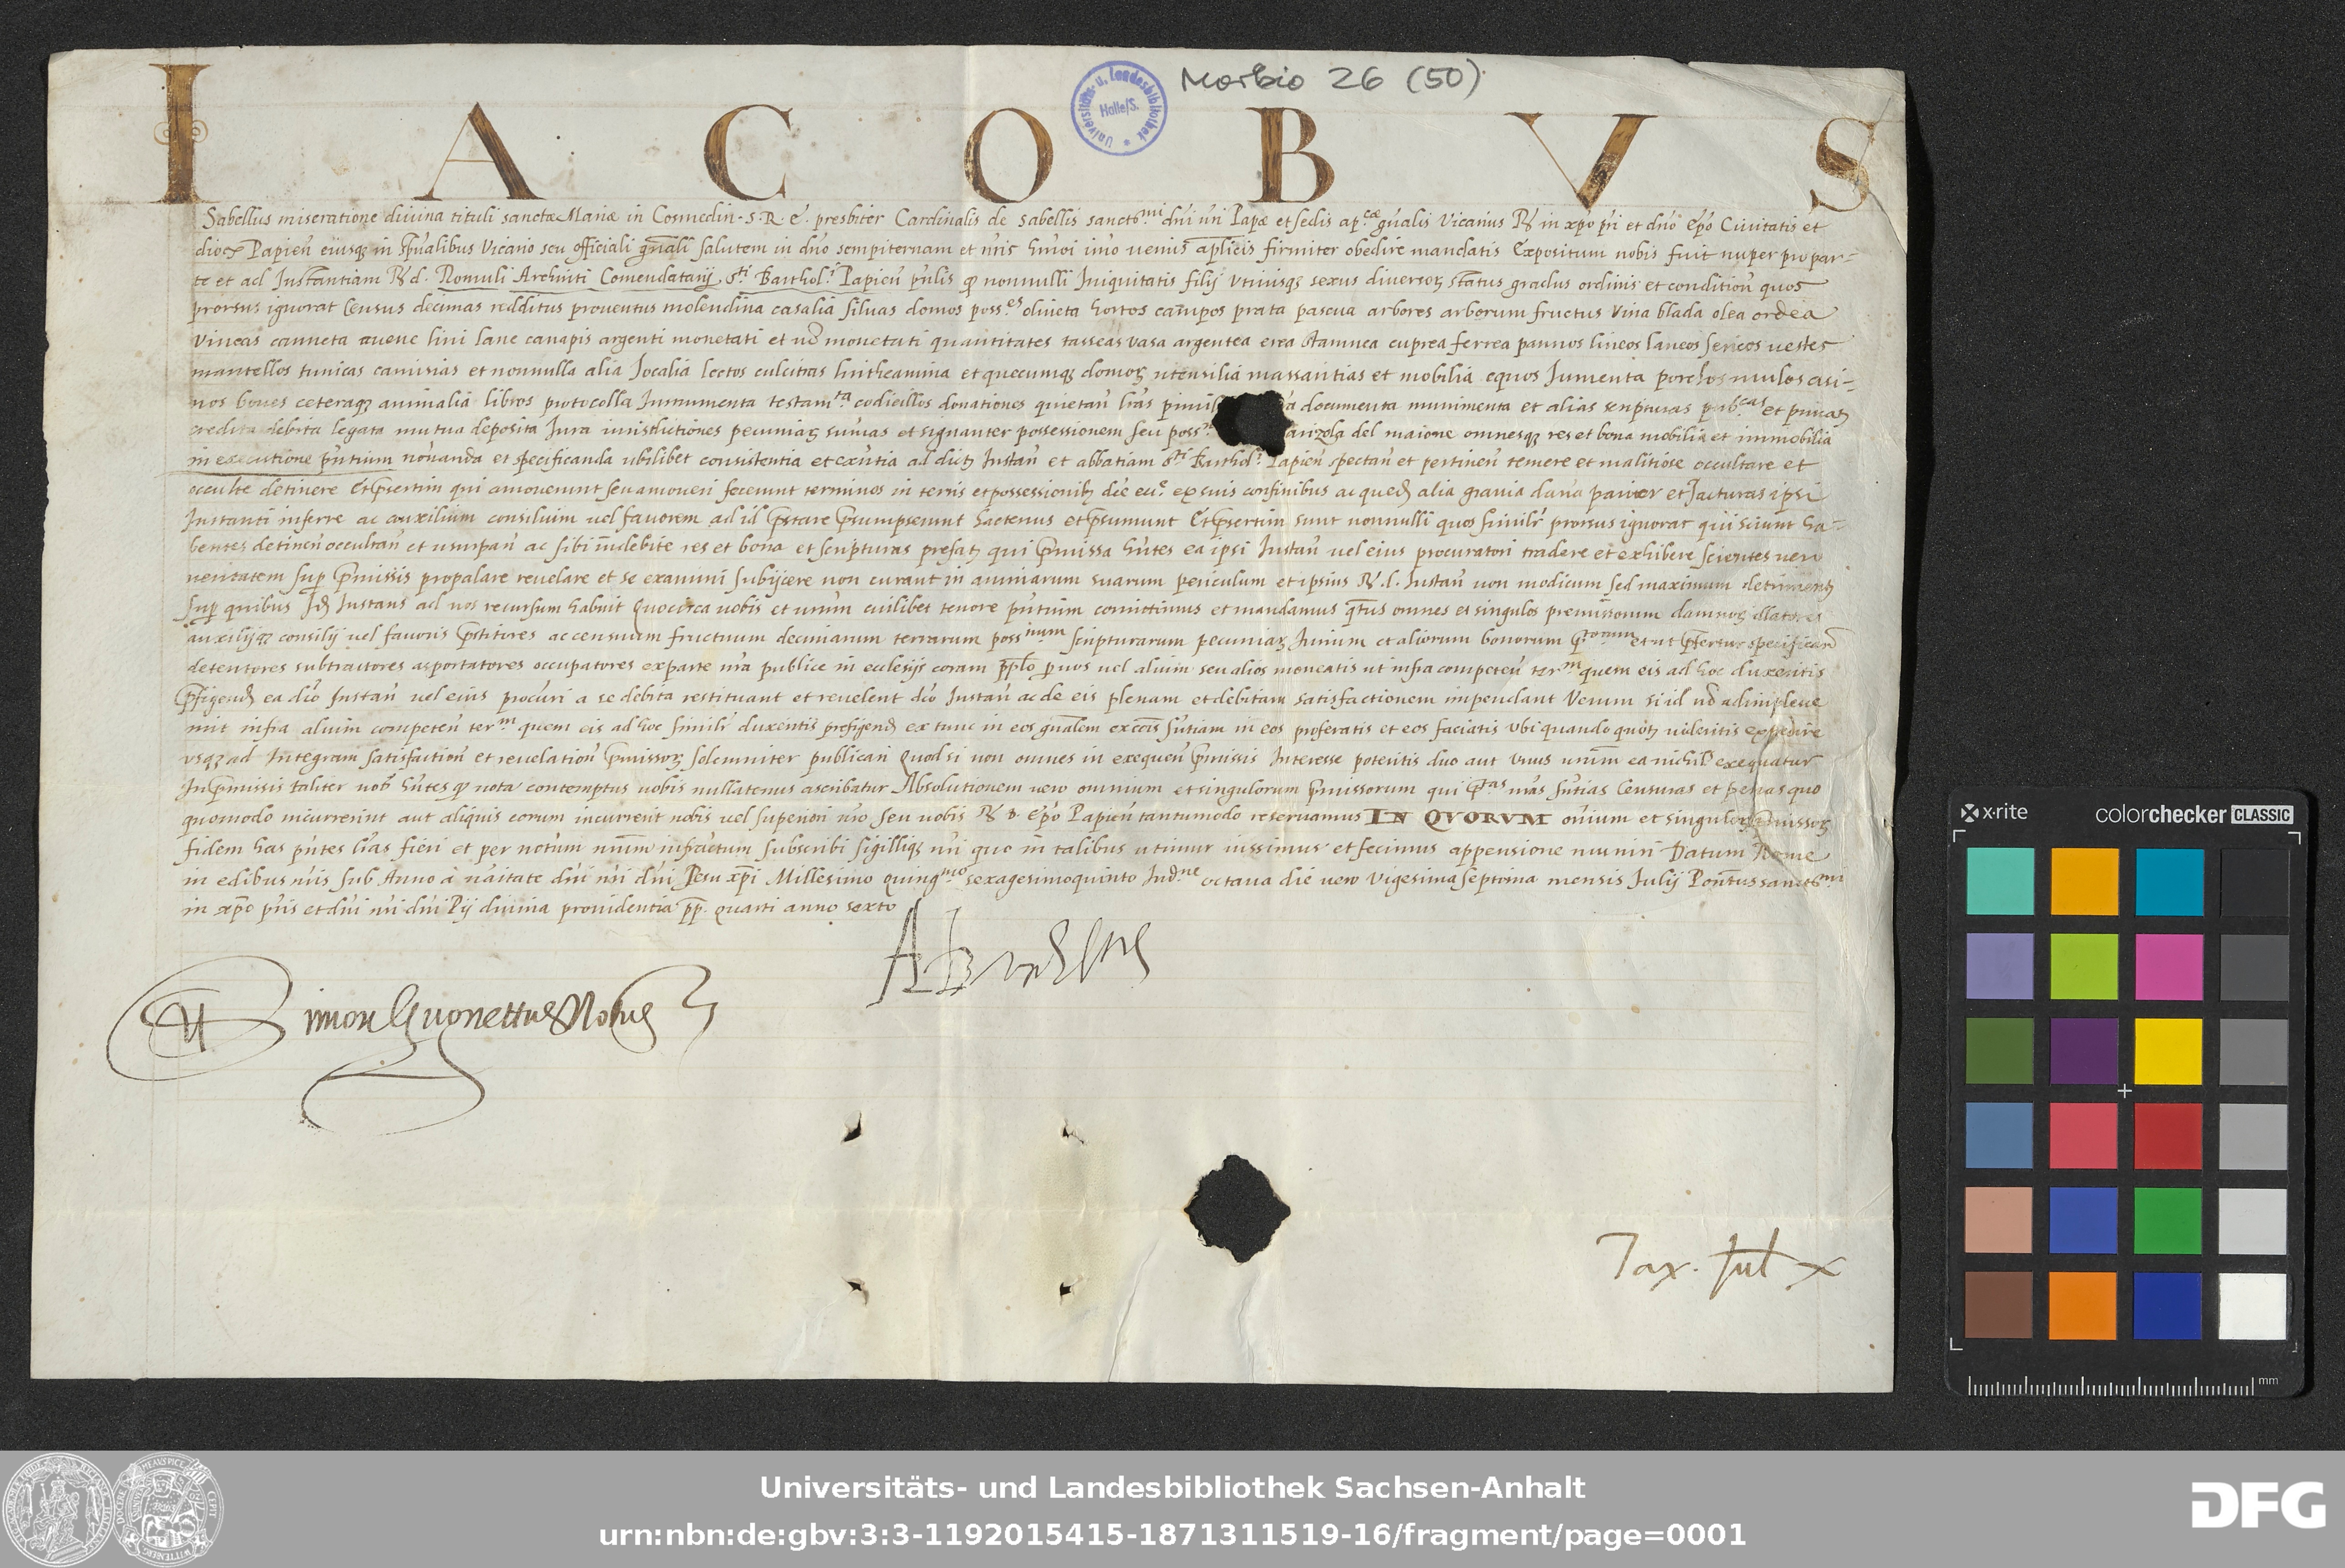 Morbio 26 (50)
Universitäts- u. Landesbibliothek Halle/S.
IACOBVS
Sabellus miseratione diuina tituli sanctæ Mariæ in Cosmedin . S. R. E. presbiter Cardinalis de Sabellis sanctmi dni nri Papæ et sedis ap.cæ gnalis Vicarius Rdo in xpo pri et dno Epo Ciuitatis et
dioc Papien eiusq in spualibus Vicario seu officiali gnali salutem in dno sempiternam et nris hmoi imo uerius aplicis firmiter obedire mandatis Expositum nobis fuit nuper pro par-
te et ad Instantiam R. d. Romuli Archinti Comendatarij sti Barthol. Papien pntis q nonnulli Iniquitatis filij vtriusq sexus diuersor status gradus ordinis et condition quos
prorsus ignorat Census decimas redditus prouentus molendina casalia siluas domos posses oliueta hortos campos prata pascua arbores arborum fructus vina blada olea ordea
vineas canneta auene lini lane canapis argenti monetati et no monetati quantitates tasseas vasa argentea erea stamnea cuprea ferrea pannos lineos laneos sericos uestes
mantellos tunicas camisias et nonnulla alia Jocalia lectos culcitras lintheamina et quecumq domor utensilia massaritias et mobilia equos Jumenta porchos mulos asi-
nos boues ceteraq animalia libros protocolla Instrumenta testamta codicillos donationes quietan lras documenta munimenta et alias scripturas pubcas et priuatas
credita debita legata mutua deposita Jura iurisdictiones pecuniar sumas et signanter possessionem seu poss del maione omnesq res et bona mobilia et immobilia
in executione pntium noianda et specificanda ubilibet consistentia et exntia ad dict Instan et abbatiam sti Barthol. Papien spectan et pertinen temere et malitiose occultare et
occulte detinere Et psertim qui amouerunt seu amoueri fecerunt terminos in terris et possessionib dce ecce ex suis confinibus ac qued alia grauia dana pariter et Jacturas ipsi
Instanti inferre ac auxilium consilium uel fauorem ad id pstare psumpserunt hactenus et psumunt Et psertim sunt nonnulli quos similr prorsus ignorat qui sciunt ha-
bentes detinen occultan et usurpan ac sibi indebite res et bona et scripturas prefat qui pmissa hntes ea ipsi Instan uel eius procuratori tradere et exhibere scientes uero
ueritatem sup pmissis propalare reuelare et se examini subijcere non curant in animarum suarum periculum et ipsius R. d. Instan non modicum sed maximum detriment
sup quibus Id Instans ad nos recursum habuit Quocirca uobis et urum cuilibet tenore pntium comittimus et mandamus qtus omnes et singulos premissorum damnor illatores
auxilijq consilij uel fauoris pstitores ac censuum fructuum decimarum terrarum possnum scripturarum pecuniar Jurium et aliorum bonorum et ut pfertur specificand
detentores subtractores asportatores occupatores ex parte nra publice in ecclesijs coram pplo p uos uel alium seu alios moneatis ut infra competen term quem eis ad hoc duxeritis
pfigend ea dco Instan uel eius procuri a se debita restituant et reuelent dco Instan ac de eis plenam et debitam satisfactionem impendant Verum si id no adimpleue
rint infra alium competen term quem eis ad hoc similr duxeritis prefigend ex tunc in eos gnalem excois sntiam in eos proferatis et eos faciatis Vbi quando quot uideritis expedire
vsq ad Integram satisfaction et reuelation pmissor solemniter publicari Quod si non omnes in exequen pmissis Interesse poteritis duo aut vnus urum ea nichil exequatur
In pmissis taliter uos hntes q nota contemptus uobis nullatenus ascribatur Absolutionem uero omnium et singulorum pmissorum qui ptas nras sntias Censuras et penas quo
quomodo incurrerint aut aliquis eorum incurrerit nobis uel superiori nro seu uobis R. D. Epo Papien tantumodo reseruamus IN QVORVM oium et singulor pmissor
fidem has pntes lras fieri et per notum nrum infractum subscribi sigilliq nri quo in talibus utimur iussimus et fecimus appensione muniri Datum Rome
in edibus nris sub Anno à natitate dni nri dni Jesu xpi Millesimo quingmo sexagesimoquinto Indne octaua die uero vigesima septima mensis Julij Pontus sanctmi
in xpo pris et dni nri dni Pij diuina prouidentia pp. quarti anno sexto
Simon Guonettus Notus
Tax. Jul x
x-rite
colorchecker CLASSIC
mm
Universitäts- und Landesbibliothek Sachsen-Anhalt
urn:nbn:de:gbv:3:3-1192015415-1871311519-16/fragment/page=0001
DFG